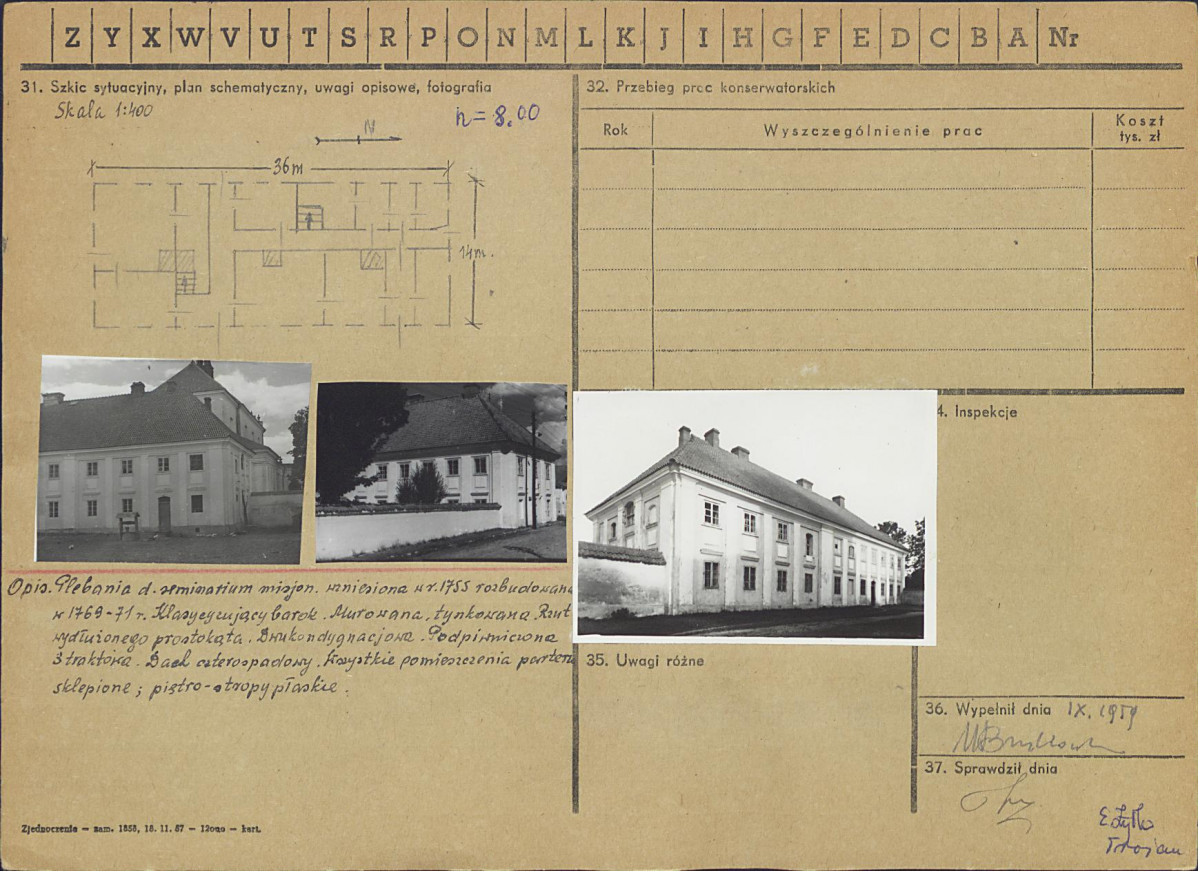 Z Y X W V U T S R P O N M L K J I H G F E D C B A Nr
31. Szkic sytuacyjny, plan schematyczny, uwagi opisowe, fotografia
Skala 1:400
h = 8.00
N
36m
14m.
Opis. Plebania d. seminarium misjon. wzniesiona w r. 1755 rozbudowana
w 1769-71 r. Klasycyzujący barok. Murowana, tynkowana. Rzut
wydłużonego prostokąta. Dwukondygnacjowa. Podpiwniczona
3 traktowa. Dach czterospadowy. Wszystkie pomieszczenia parteru
sklepione; piętro - stropy płaskie.
Zjednoczenie — zam. 1858, 18. 11. 57 — 12000 — kart.
32. Przebieg prac konserwatorskich
Rok
Wyszczególnienie prac
Koszt
tys. zł
4. Inspekcje
35. Uwagi różne
36. Wypełnił dnia IX. 1959
37. Sprawdził dnia
Edytko
Trojan